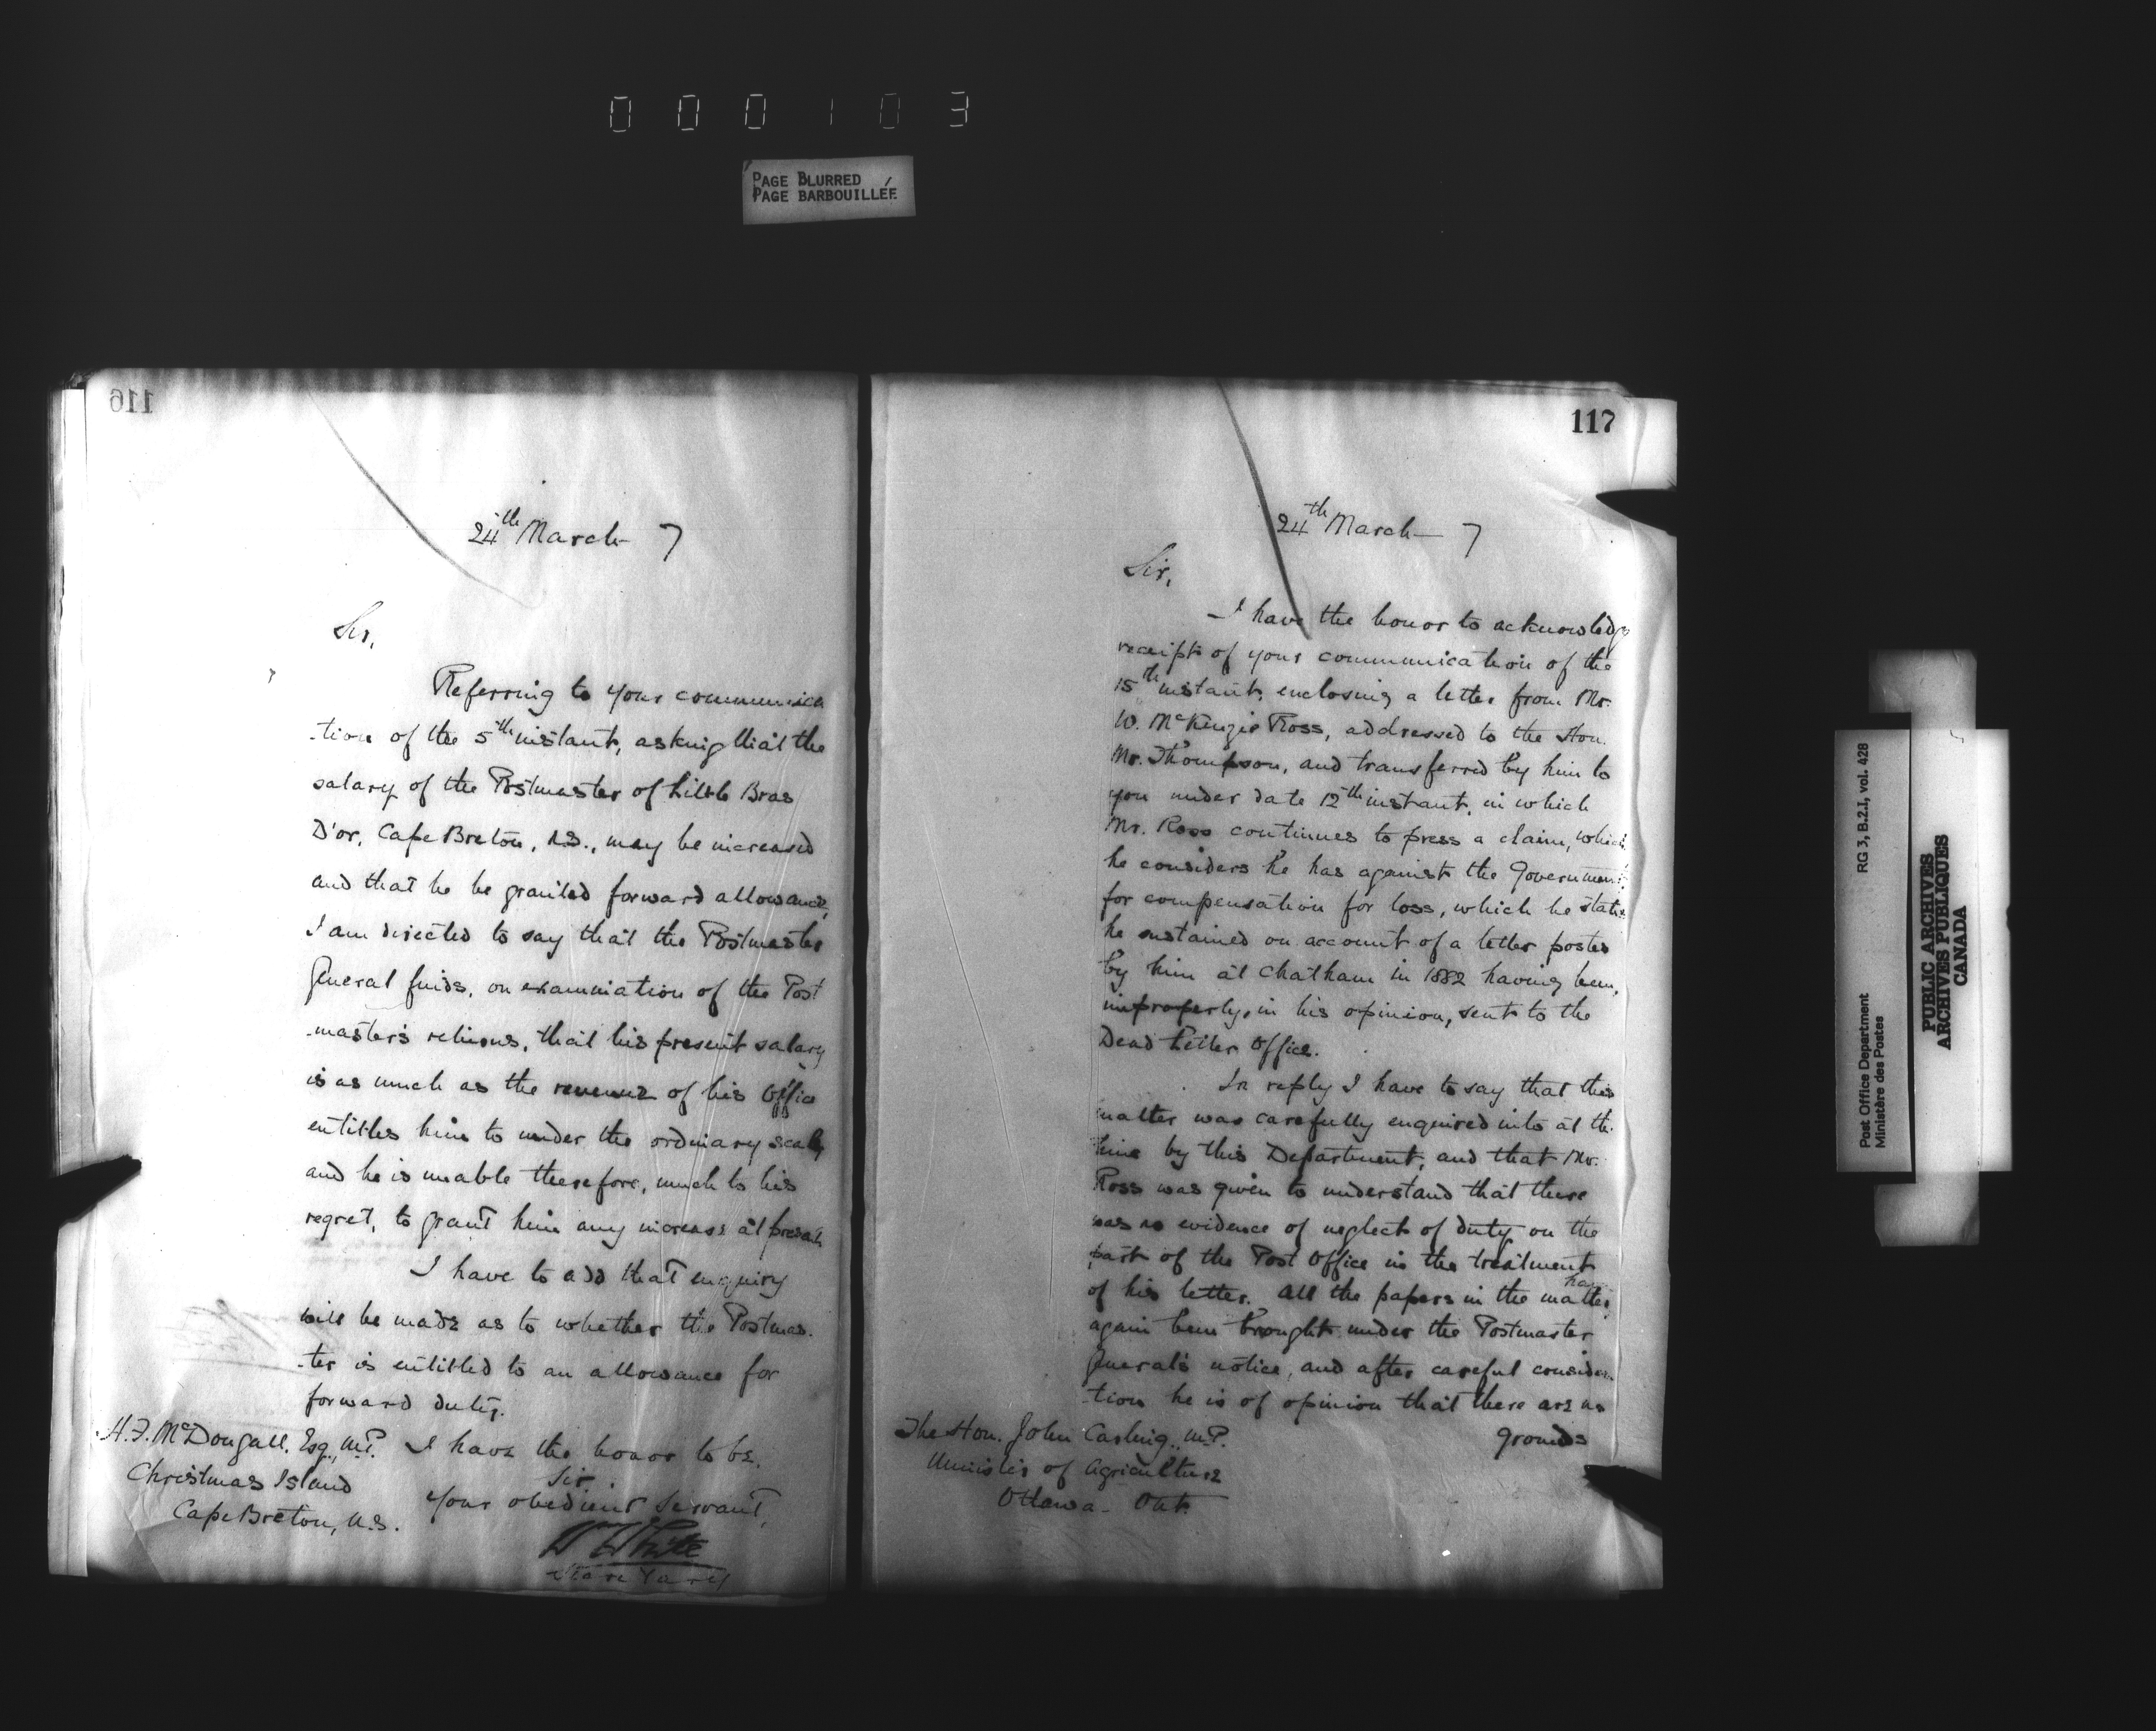 000103
PAGE BLURRED
PAGE BARBOUILLÉE
116
24th March 7
Sir,
Referring to your communica
-tion of the 5th instant, asking that the
salary of the Postmaster of Little Bras
D'or, Cape Breton, N.S., may be increased
and that he be granted forward allowance,
I am directed to say that the Postmaster
General finds, on examination of the Post
-master's returns, that his present salary
is as much as the revenue of his Office
entitles him to under the ordinary scale,
and he is unable therefore, much to his
regret, to grant him any increase at present.
I have to add that enquiry
will be made as to whether the Postmas-
-ter is entitled to an allowance for
forward duty.
I have the honor to be,
Sir,
Your obedient Servant,
W White
Secretary
H.F. McDougall, Esq., M.P.
Christmas Island
Cape Breton, N.S.
117
24th March 7
Sir,
I have the honor to acknowledge
receipt of your communication of the
15th instant, enclosing a letter from Mr.
W. McKenzie Ross, addressed to the Hon.
Mr. Thompson, and transferred by him to
you under date 12th instant, in which
Mr. Ross continues to press a claim, which
he considers he has against the Government
for compensation for loss, which he states
he sustained on account of a letter posted
by him at Chatham in 1882 having been,
improperly, in his opinion, sent to the
Dead Letter Office.
In reply I have to say that this
matter was carefully enquired into at the
time by this Department, and that Mr.
Ross was given to understand that there
was no evidence of neglect of duty on the
part of the Post Office in the treatment
of his letter. All the papers in the matter have
again been brought under the Postmaster
General's notice, and after careful considera
-tion he is of opinion that there are no
grounds
The Hon. John Carling, M.P.
Minister of Agriculture
Ottawa - Ont.
Post Office Department
Ministère des Postes
RG 3, B.2.I, vol. 428
PUBLIC ARCHIVES
ARCHIVES PUBLIQUES
CANADA